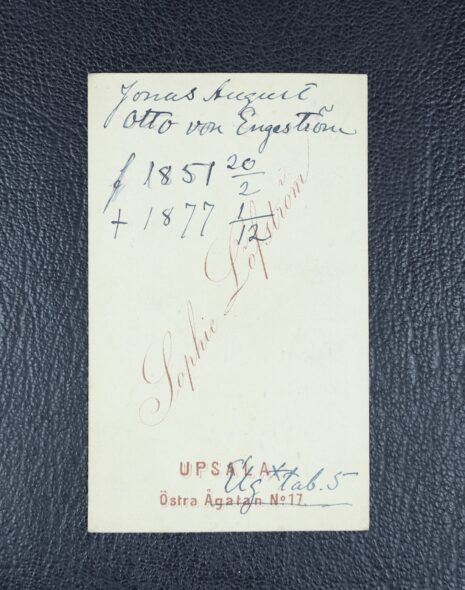 Jonas August
Otto von Engeström
f 1851 20/2
+ 1877 1/12
Sophie Löfström
UPSALA
Elg tab. 5
Östra Ågatan Nº 17